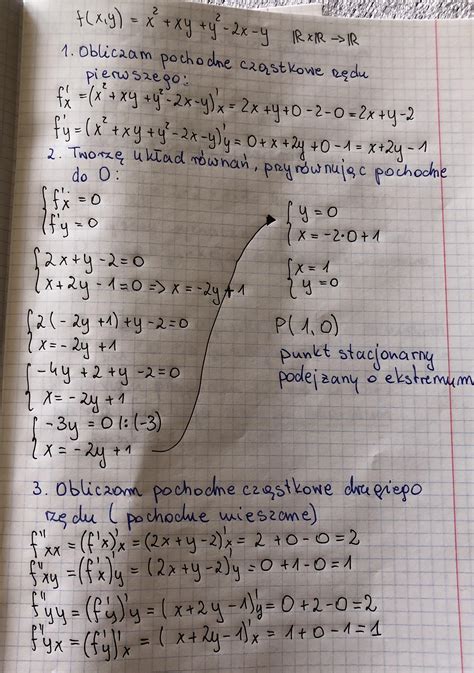 f(x,y) = x² + xy + y² - 2x - y   ℝ×ℝ → ℝ
1. Obliczam pochodne cząstkowe rzędu
pierwszego:
f'x = (x² + xy + y² - 2x - y)'x = 2x + y + 0 - 2 - 0 = 2x + y - 2
f'y = (x² + xy + y² - 2x - y)'y = 0 + x + 2y + 0 - 1 = x + 2y - 1
2. Tworzę układ równań, przyrównując pochodne
do 0:
{ f'x = 0
{ f'y = 0
{ 2x + y - 2 = 0
{ x + 2y - 1 = 0 => x = -2y + 1
{ 2(-2y + 1) + y - 2 = 0
{ x = -2y + 1
{ -4y + 2 + y - 2 = 0
{ x = -2y + 1
{ -3y = 0 |:(-3)
{ x = -2y + 1
{ y = 0
{ x = -2·0 + 1
{ x = 1
{ y = 0
P(1,0)
punkt stacjonarny
podejzany o ekstremum
3. Obliczam pochodne cząstkowe drugiego
rzędu (pochodne mieszane)
f''xx = (f'x)'x = (2x + y - 2)'x = 2 + 0 - 0 = 2
f''xy = (f'x)'y = (2x + y - 2)'y = 0 + 1 - 0 = 1
f''yy = (f'y)'y = (x + 2y - 1)'y = 0 + 2 - 0 = 2
f''yx = (f'y)'x = (x + 2y - 1)'x = 1 + 0 - 1 = 1